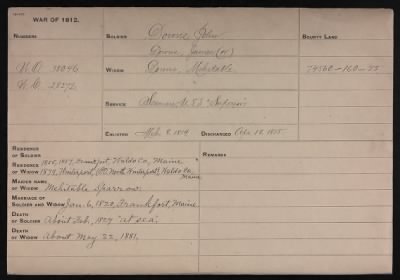 WAR OF 1812.
NUMBERS
SOLDIER Downe John
Downe, James (or)
BOUNTY LAND
W.O. 38046
W.C. 28272
WIDOW Downe, Mehitable
74560-160-55
SERVICE Seaman U.S.S. "Superior"
ENLISTED Feb. 8, 1814 DISCHARGED Apr. 15, 1815.
RESIDENCE OF SOLDIER
REMARKS
RESIDENCE OF WIDOW 1855, 1857, Frankfort, Waldo Co., Maine
1879, Winterport, (P.O. North Winterport) Waldo Co., Maine
MAIDEN NAME OF WIDOW Mehitable Sparrow.
MARRIAGE OF SOLDIER AND WIDOW Jan. 6, 1820, Frankfort, Maine
DEATH OF SOLDIER About Feb., 1829 "at sea".
DEATH OF WIDOW About May 22, 1881.